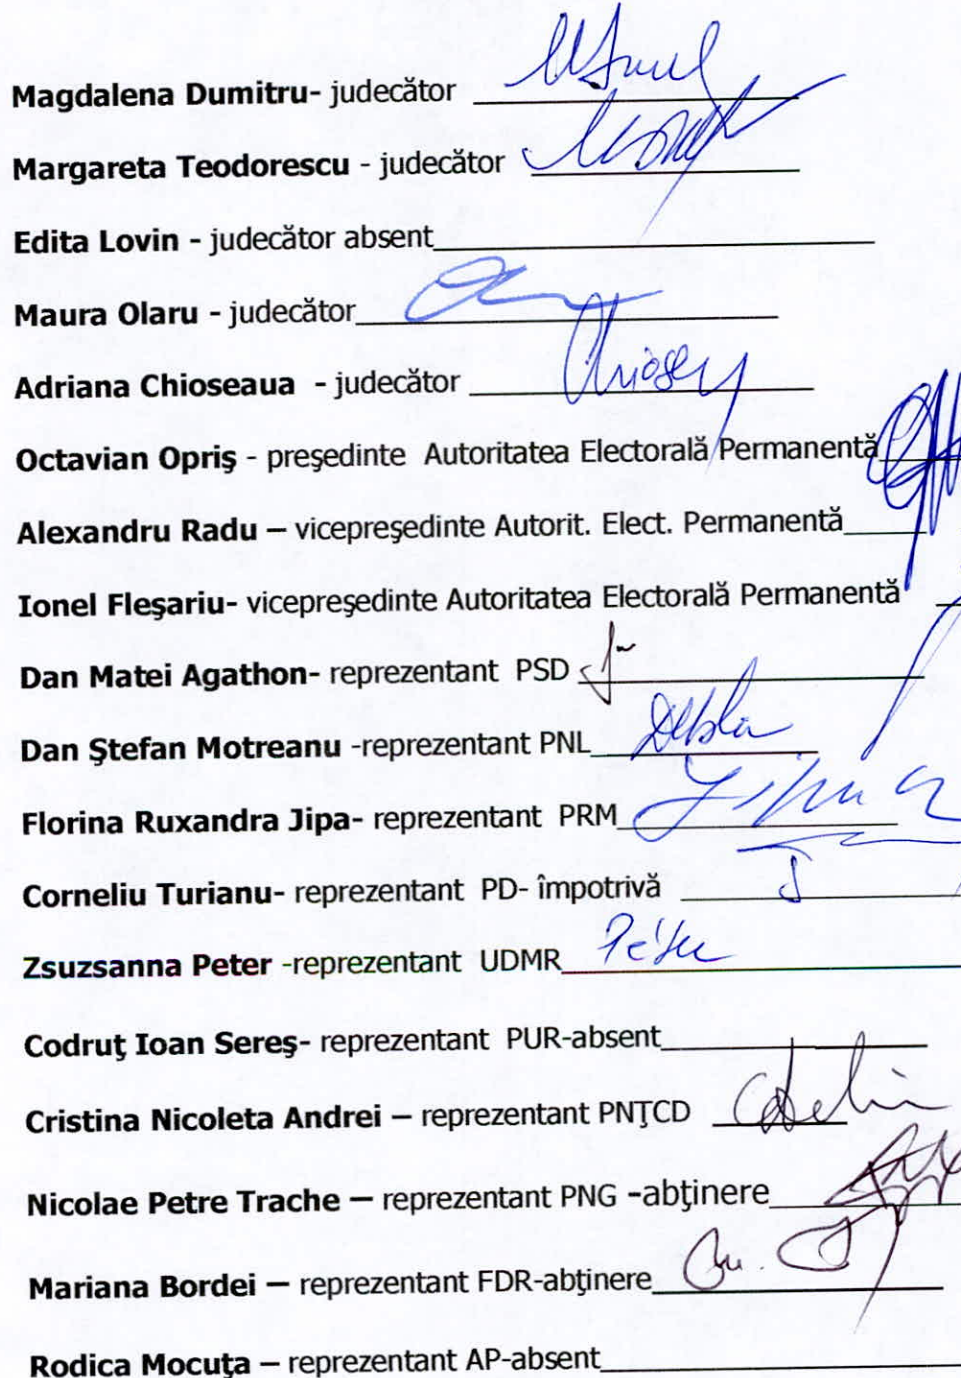 Magdalena Dumitru- judecător
Margareta Teodorescu - judecător
Edita Lovin - judecător absent
Maura Olaru - judecător
Adriana Chioseaua - judecător
Octavian Opriş - preşedinte Autoritatea Electorală Permanentă
Alexandru Radu – vicepreşedinte Autorit. Elect. Permanentă
Ionel Fleşariu- vicepreşedinte Autoritatea Electorală Permanentă
Dan Matei Agathon- reprezentant PSD
Dan Ştefan Motreanu -reprezentant PNL
Florina Ruxandra Jipa- reprezentant PRM
Corneliu Turianu- reprezentant PD- împotrivă
Zsuzsanna Peter -reprezentant UDMR
Codruţ Ioan Sereş- reprezentant PUR-absent
Cristina Nicoleta Andrei – reprezentant PNŢCD
Nicolae Petre Trache – reprezentant PNG -abţinere
Mariana Bordei – reprezentant FDR-abţinere
Rodica Mocuţa – reprezentant AP-absent